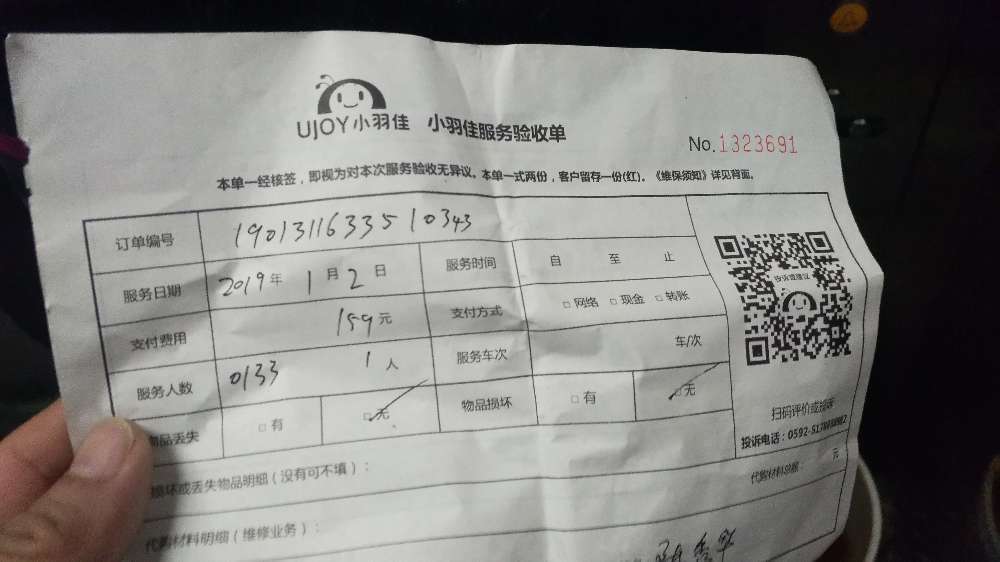 UJOY小羽佳 小羽佳服务验收单
No.1323691
本单一经核签，即视为对本次服务验收无异议。本单一式两份，客户留存一份(红)。《维保须知》详见背面。
订单编号 19013116335 10343
服务日期 2019年 1月 2日 服务时间 自 至 止
支付费用 159元 支付方式 □网络 □现金 □转账
服务人数 0133 1人 服务车次 车/次
物品丢失 □有 □无 物品损坏 □有 □无
投诉或建议
扫码评价或投诉
投诉电话：0592-
损坏或丢失物品明细（没有可不填）：
代购材料总额： 元
代购材料明细（维修业务）：